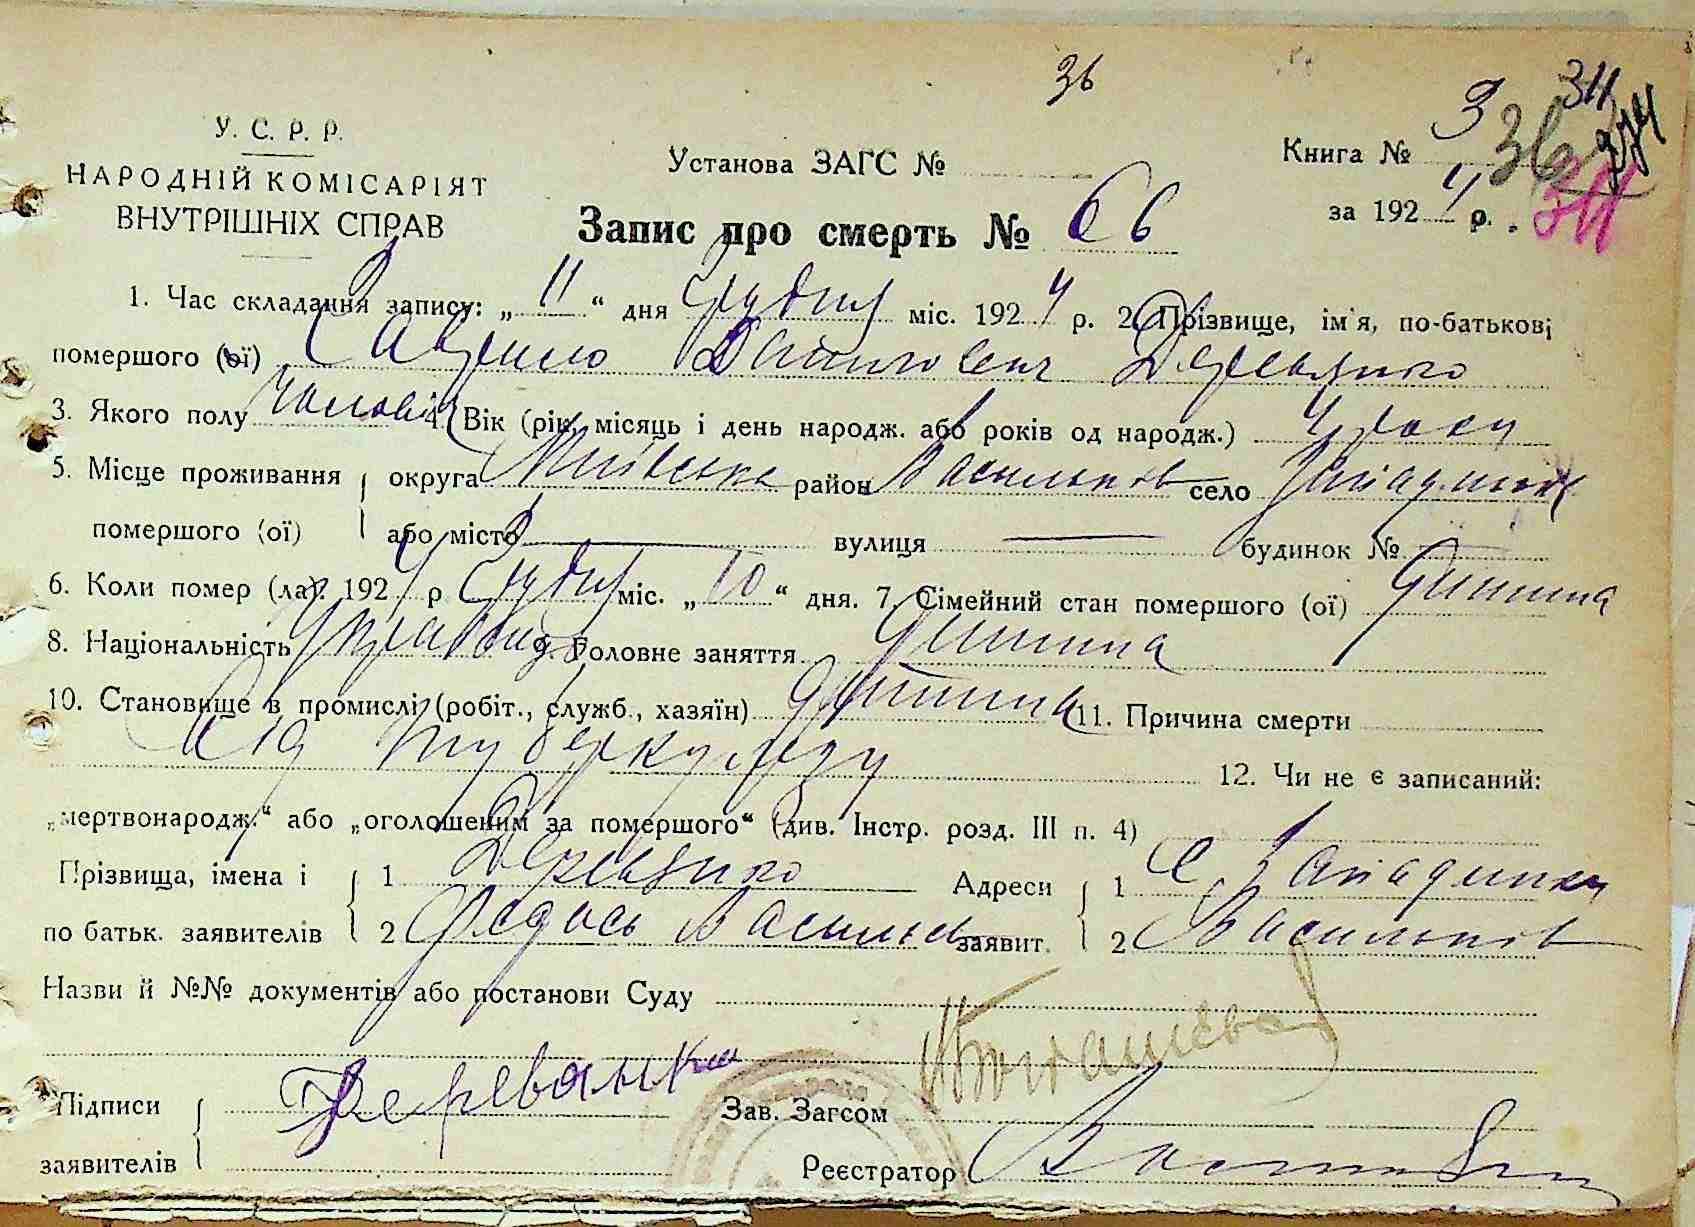 36
У. С. Р. Р.
НАРОДНІЙ КОМІСАРІЯТ
ВНУТРІШНІХ СПРАВ
Установа ЗАГС №
Книга № 3
36
311
за 1924 р.
Запис про смерть № 66
1. Час складання запису: „11“ дня Грудня міс. 1924 р. 2. Прізвище, ім'я, по-батькові
помершого (ої) Гаврило Данилович Деревянко
3. Якого полу чоловіч 4. Вік (рік, місяць і день народж. або років од народж.) 4 роки
5. Місце проживання помершого (ої) округа Київська район Васильков село Западинка
або місто — вулиця — будинок № —
6. Коли помер (ла). 1924 р Грудня міс. „10“ дня. 7. Сімейний стан помершого (ої) дитина
8. Національність Українець 9. Головне заняття дитина
10. Становище в промислі (робіт., служб., хазяїн) дитина 11. Причина смерти
Від туберкульозу 12. Чи не є записаний:
„мертвонародж.“ або „оголошеним за помершого“ (див. Інстр. розд. III п. 4)
Прізвища, імена і по батьк. заявителів 1 Деревянко Адреси заявит. 1 с. Западинка
2 Федось Васильев 2 Васильков
Назви й №№ документів або постанови Суду
Підписи заявителів Деревянко Зав. Загсом
Реєстратор